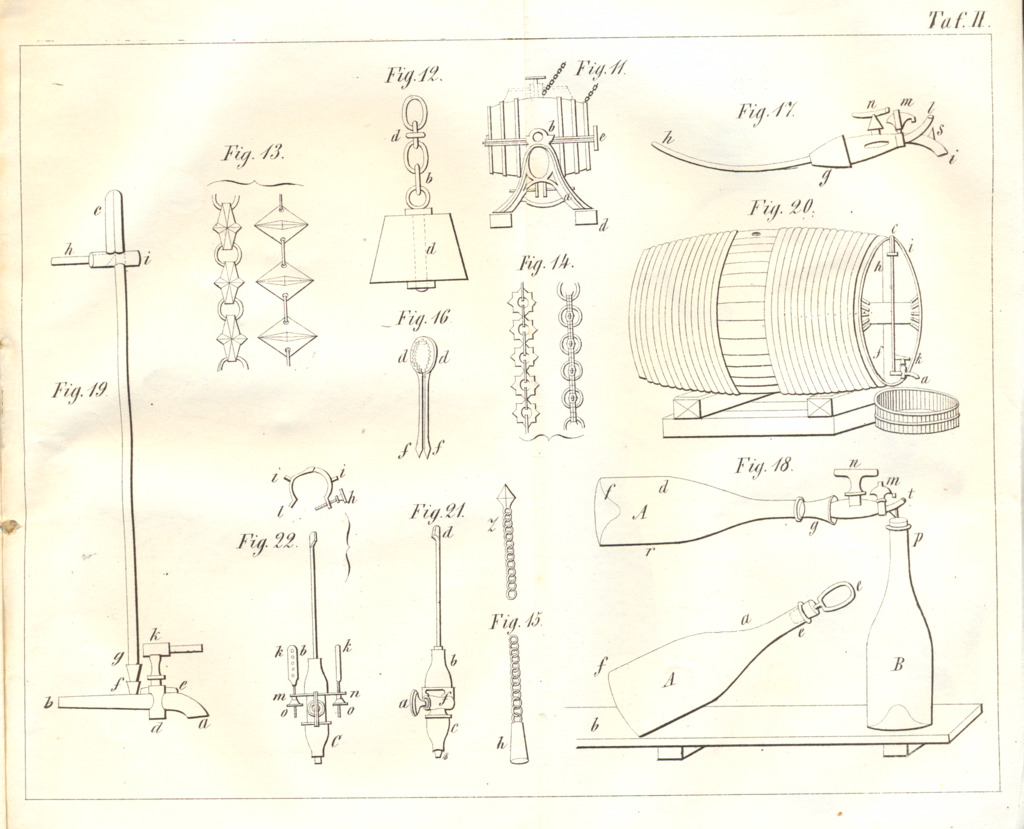 Taf. II.
Fig. 12.
Fig. 11.
d
b
d
b
e
a
d
Fig. 17.
n
m
l
s
i
h
g
Fig. 13.
Fig. 20.
c
i
h
f
k
a
Fig. 14.
Fig. 16.
d
d
f
f
Fig. 19.
c
h
i
k
g
f
e
b
d
a
Fig. 18.
n
m
t
f
d
A
g
r
p
e
a
e
f
A
B
b
Fig. 22.
i
i
l
h
k
b
k
m
n
o
o
C
Fig. 21.
d
b
a
f
c
s
Fig. 15.
z
h